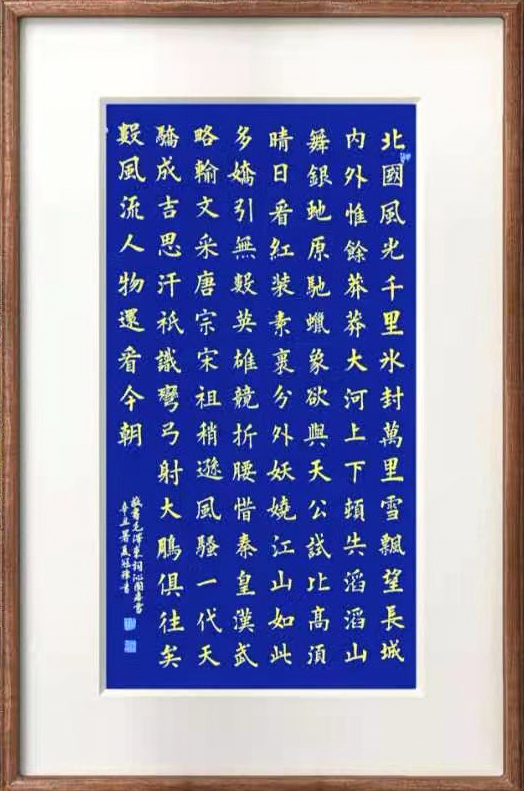 北國風光千里氷封萬里雪飄望長城
内外惟餘莽莽大河上下頓失滔滔山
舞銀虵原馳蠟象欲與天公試比高須
晴日看紅装素裹分外妖嬈江山如此
多嬌引無數英雄競折腰惜秦皇漢武
略輸文采唐宗宋祖稍遜風騷一代天
驕成吉思汗祇識彎弓射大鵰俱往矣
數風流人物還看今朝
敬書毛澤東詞沁園春雪
辛丑夏書